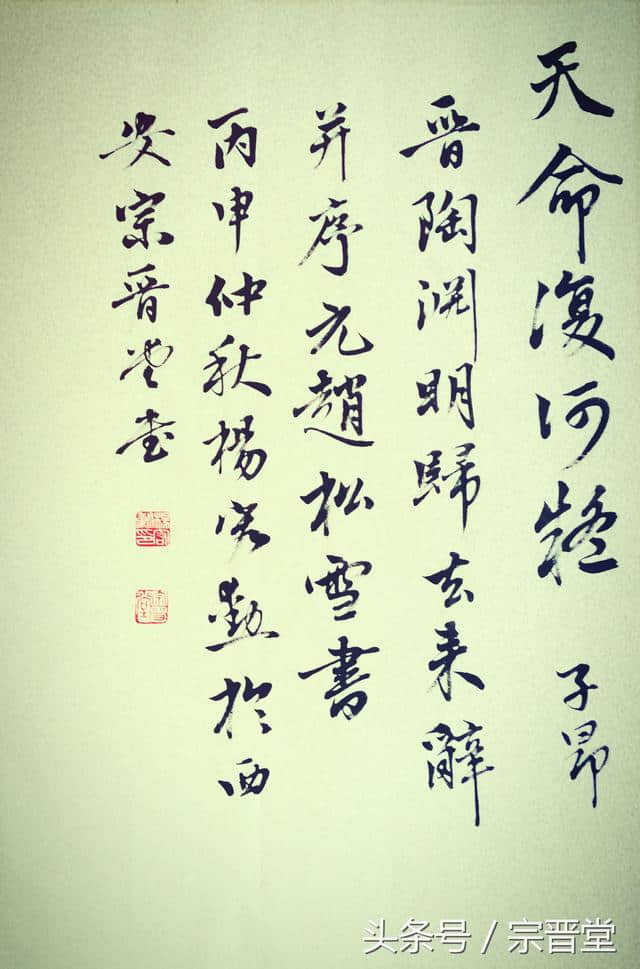 天命復何疑 子昂
晋陶渊明歸去来辭
并序元趙松雪書
丙申仲秋楊於西
安宗晋堂書
头条号 / 宗晋堂